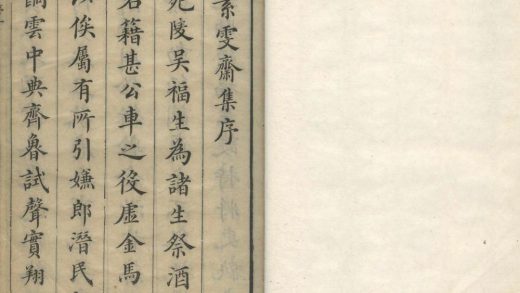 素雯齋集序
宛陵吳福生為諸生祭酒
名籍甚公車之後虛金馬
俟屬有所引嫌郎潛民
雲中典齊魯試聲實翔